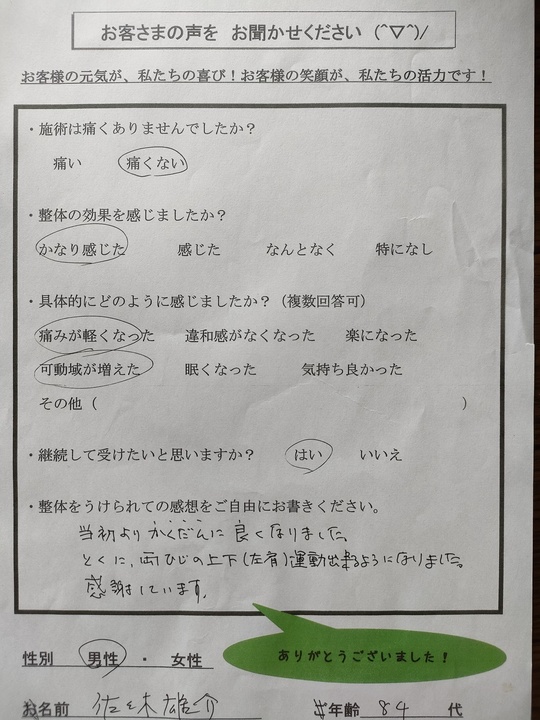 お客さまの声を お聞かせください (^▽^)/
お客様の元気が、私たちの喜び！お客様の笑顔が、私たちの活力です！
・施術は痛くありませんでしたか？
痛い 痛くない
・整体の効果を感じましたか？
かなり感じた 感じた なんとなく 特になし
・具体的にどのように感じましたか？（複数回答可）
痛みが軽くなった 違和感がなくなった 楽になった
可動域が増えた 眠くなった 気持ち良かった
その他（ ）
・継続して受けたいと思いますか？ はい いいえ
・整体をうけられての感想をご自由にお書きください。
当初よりかくだんに良くなりました。
とくに、両ひじの上下(左右)運動出来るようになりました。
感謝しています。
ありがとうございました！
性別 男性 ・ 女性
お名前 佐々木雄介 年齢 84 代